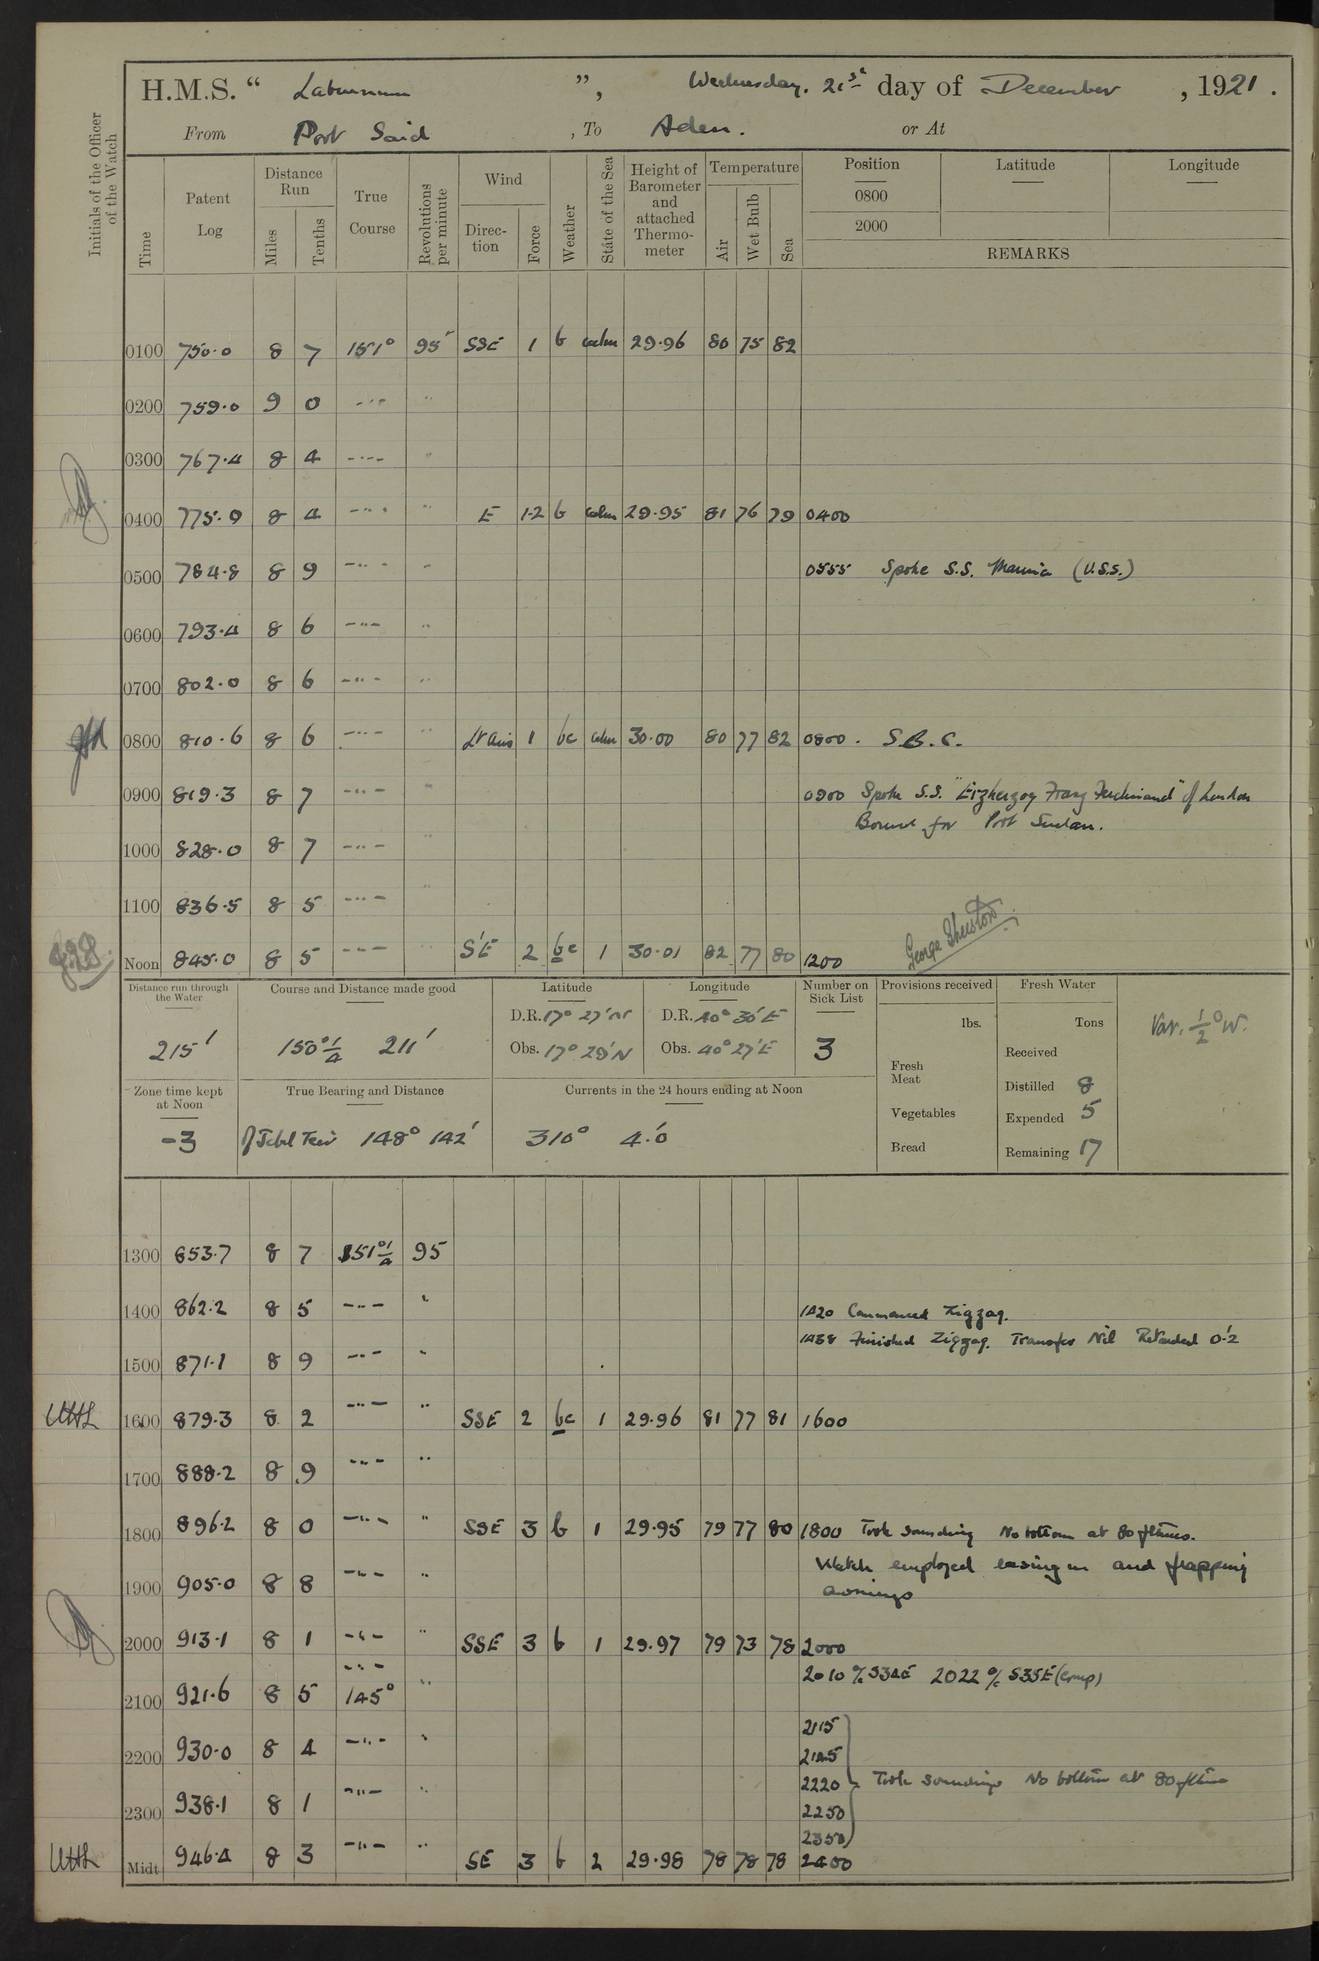 H.M.S. “ Laburnum ”, Wednesday, 21st day of December, 1921.
From Port Said, To Aden. or At
Initials of the Officer of the Watch
Time
Patent Log
Distance Run
Miles
Tenths
True Course
Revolutions per minute
Wind
Direction
Force
Weather
State of the Sea
Height of Barometer and attached Thermometer
Temperature
Air
Wet Bulb
Sea
Position
0800
2000
Latitude
Longitude
REMARKS
0100 750.0 8 7 151° 95 SSE 1 b calm 29.96 80 75 82
0200 759.0 9 0 -"- "
0300 767.4 8 4 -"- "
0400 775.9 8 4 -"- " E 1-2 b calm 29.95 81 76 79 0400
0500 784.8 8 9 -"- " 0555 Spoke S.S. (U.S.S.)
0600 793.4 8 6 -"- "
0700 802.0 8 6 -"- "
0800 810.6 8 6 -"- " Lt airs 1 bc calm 30.00 80 77 82 0800. S.B.C.
0900 819.3 8 7 -"- " 0900 Spoke S.S. "Erzherzog Franz Ferdinand" of London
Bound for Port Sudan.
1000 828.0 8 7 -"- "
1100 836.5 8 5 -"- "
Noon 845.0 8 5 -"- " S'E 2 bc 1 30.01 82 77 80 1200
Distance run through the Water
215'
Course and Distance made good
150°1/4 211'
Latitude
D.R. 17° 27' N
Obs. 17° 29' N
Longitude
D.R. 40° 30' E
Obs. 40° 27' E
Number on Sick List
3
Provisions received
lbs.
Fresh Meat
Vegetables
Bread
Fresh Water
Tons
Received
Distilled 8
Expended 5
Remaining 17
Var. 1/2° W.
Zone time kept at Noon
-3
True Bearing and Distance
Jebel Teir 148° 142'
Currents in the 24 hours ending at Noon
310° 4.'0
1300 853.7 8 7 151°1/4 95
1400 862.2 8 5 -"- " 1420 Commenced Zigzag.
1438 Finished Zigzag. Transfer Nil Retarded 0.'2
1500 871.1 8 9 -"- "
1600 879.3 8 2 -"- " SSE 2 bc 1 29.96 81 77 81 1600
1700 888.2 8 9 -"- "
1800 896.2 8 0 -"- " SSE 3 b 1 29.95 79 77 80 1800 Took sounding No bottom at 80 fthms.
Watch employed easing in and frapping
awnings
1900 905.0 8 8 -"- "
2000 913.1 8 1 -"- " SSE 3 b 1 29.97 79 73 78 2000
-"- 2010 a/c S34E 2022 a/c S35E (Comp)
2100 921.6 8 5 145° "
2115
2200 930.0 8 4 -"- " 2145
2220 Took soundings No bottom at 80 fthms
2300 938.1 8 1 -"- " 2250
2350
Midt 946.4 8 3 -"- " SE 3 b 2 29.98 78 78 78 2400